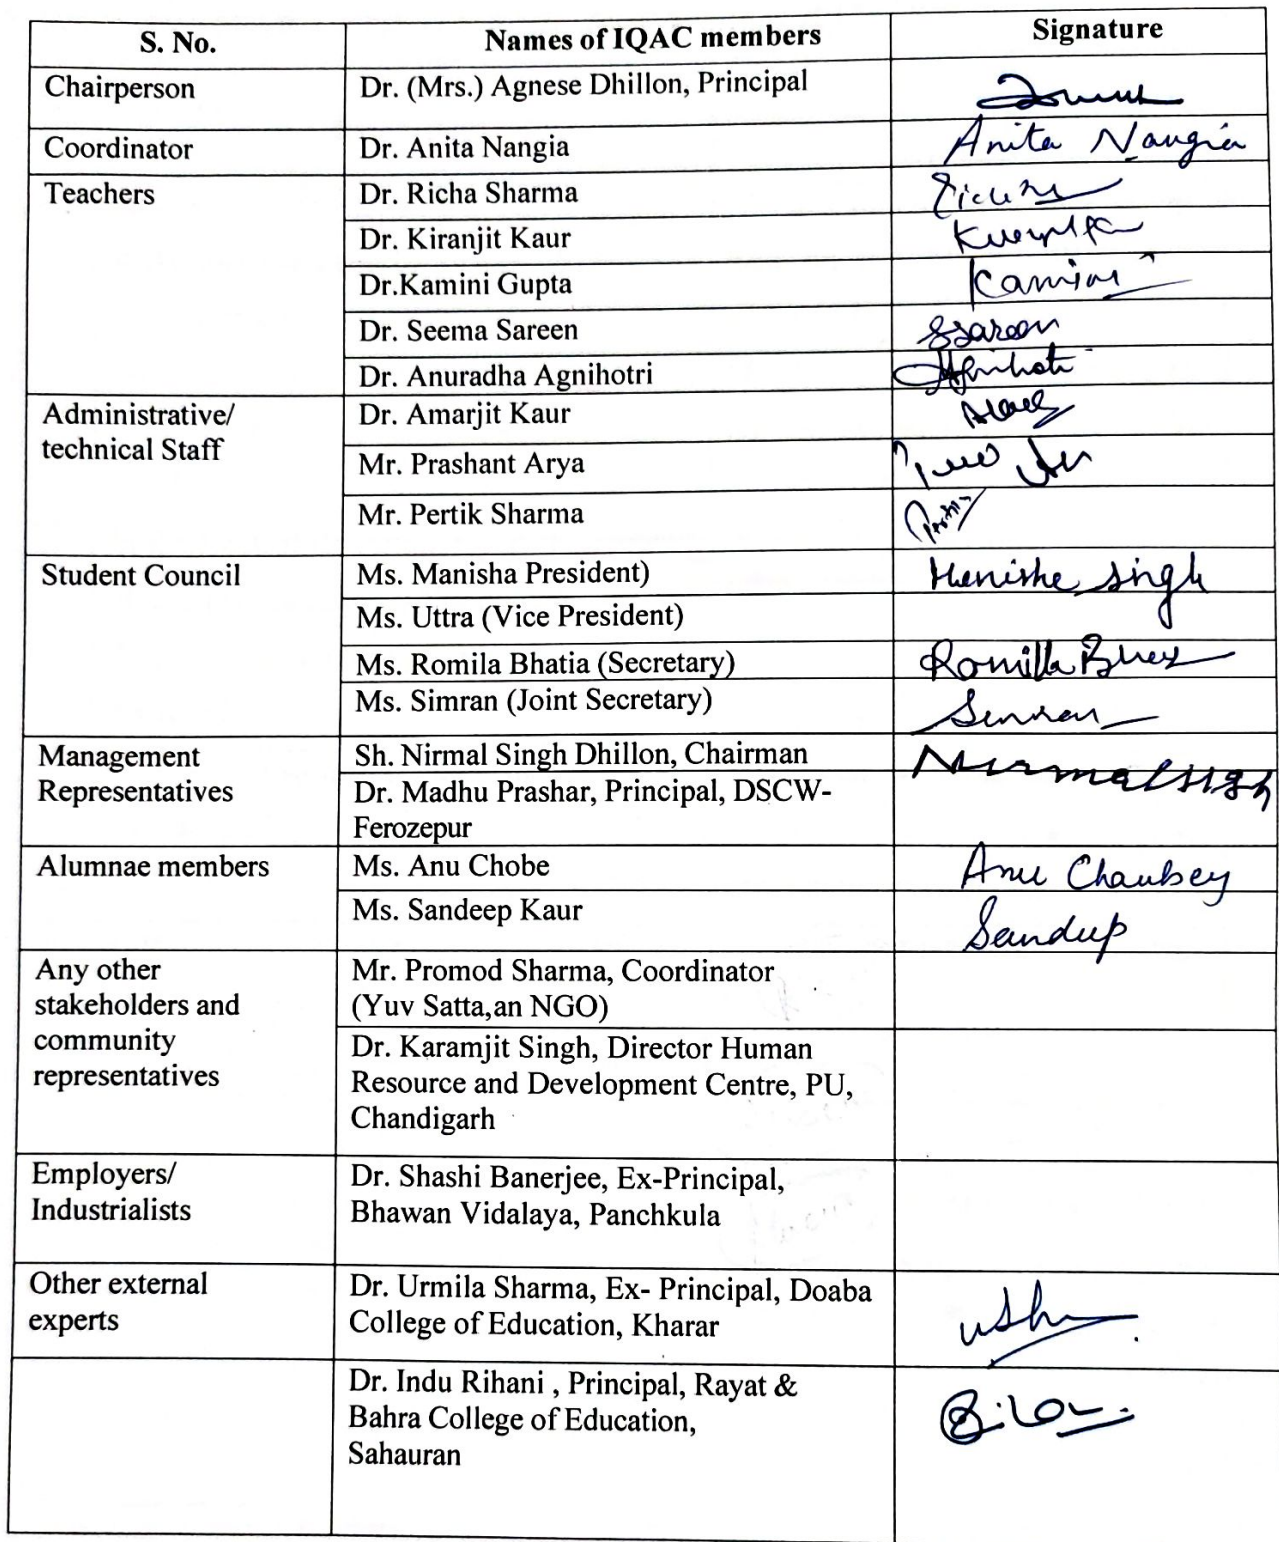 S. No. Names of IQAC members Signature
Chairperson Dr. (Mrs.) Agnese Dhillon, Principal
Coordinator Dr. Anita Nangia Anita Nangia
Teachers Dr. Richa Sharma
Dr. Kiranjit Kaur
Dr.Kamini Gupta Kamini
Dr. Seema Sareen SSareen
Dr. Anuradha Agnihotri Agnihotri
Administrative/
technical Staff
Dr. Amarjit Kaur
Mr. Prashant Arya
Mr. Pertik Sharma
Student Council Ms. Manisha President) Manisha Singh
Ms. Uttra (Vice President)
Ms. Romila Bhatia (Secretary) Romilla
Ms. Simran (Joint Secretary) Simran
Management
Representatives
Sh. Nirmal Singh Dhillon, Chairman Nirmal Singh
Dr. Madhu Prashar, Principal, DSCW-
Ferozepur
Alumnae members Ms. Anu Chobe Anu Chaubey
Ms. Sandeep Kaur Sandeep
Any other
stakeholders and
community
representatives
Mr. Promod Sharma, Coordinator
(Yuv Satta,an NGO)
Dr. Karamjit Singh, Director Human
Resource and Development Centre, PU,
Chandigarh
Employers/
Industrialists
Dr. Shashi Banerjee, Ex-Principal,
Bhawan Vidalaya, Panchkula
Other external
experts
Dr. Urmila Sharma, Ex- Principal, Doaba
College of Education, Kharar
Dr. Indu Rihani , Principal, Rayat &
Bahra College of Education,
Sahauran